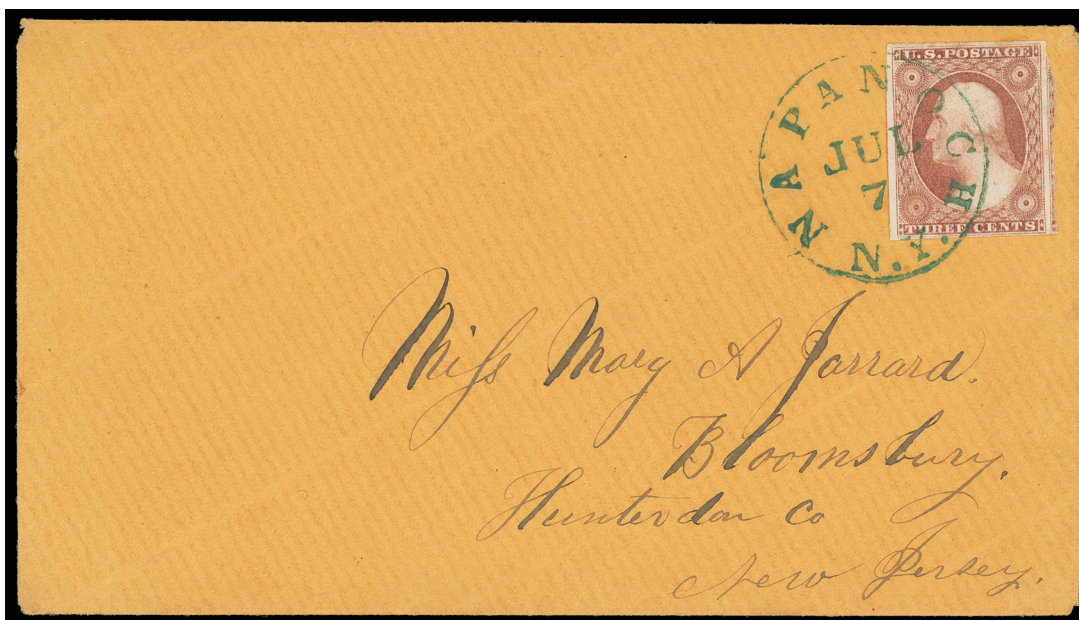 U.S. POSTAGE
THREE CENTS
NAPANOCH
N.Y.
JUL
7
Miss Mary A Jarrard.
Bloomsbury.
Hunterdon Co
New Jersey.